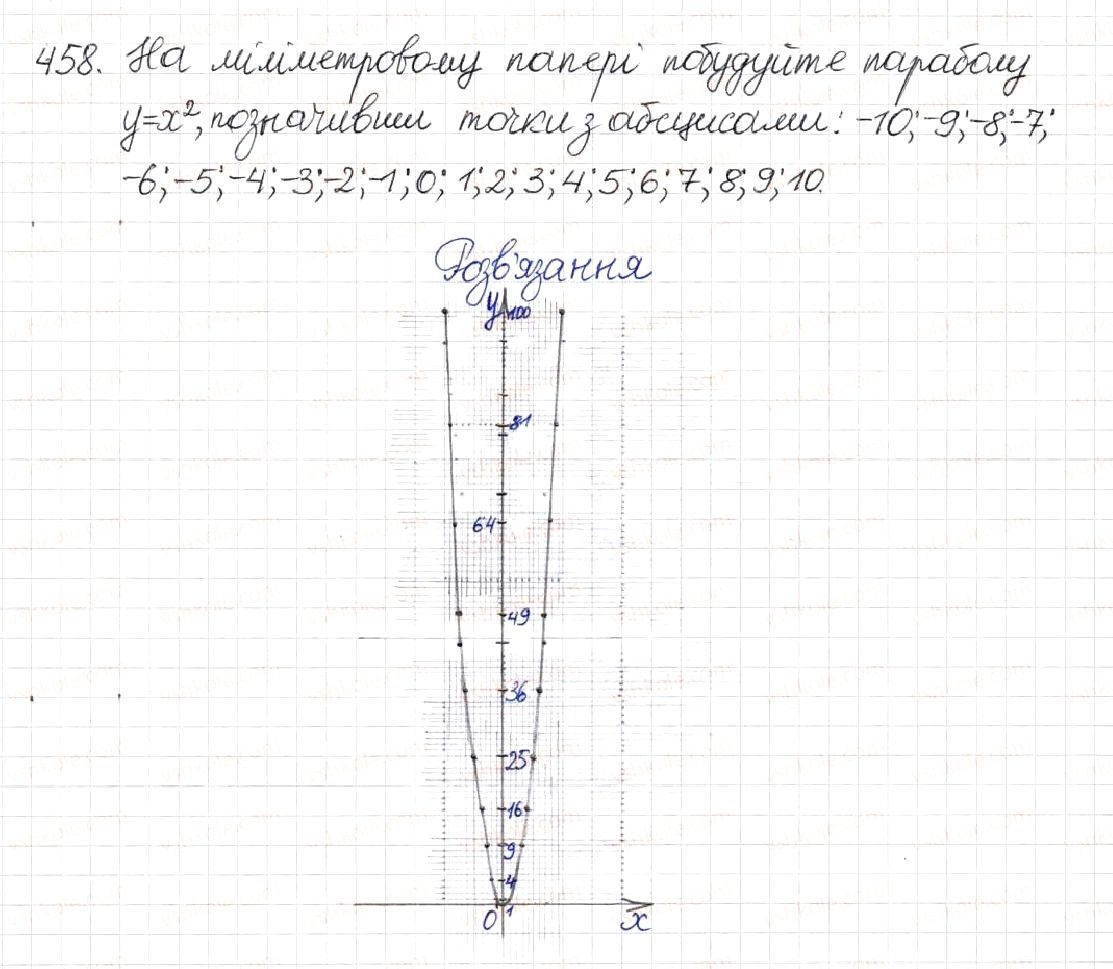 458. На міліметровому папері побудуйте параболу
y=x², позначивши точки з абсцисами: -10; -9; -8; -7;
-6; -5; -4; -3; -2; -1; 0; 1; 2; 3; 4; 5; 6; 7; 8; 9; 10.
Розв'язання
y
100
81
64
49
36
25
16
9
4
0 1 x